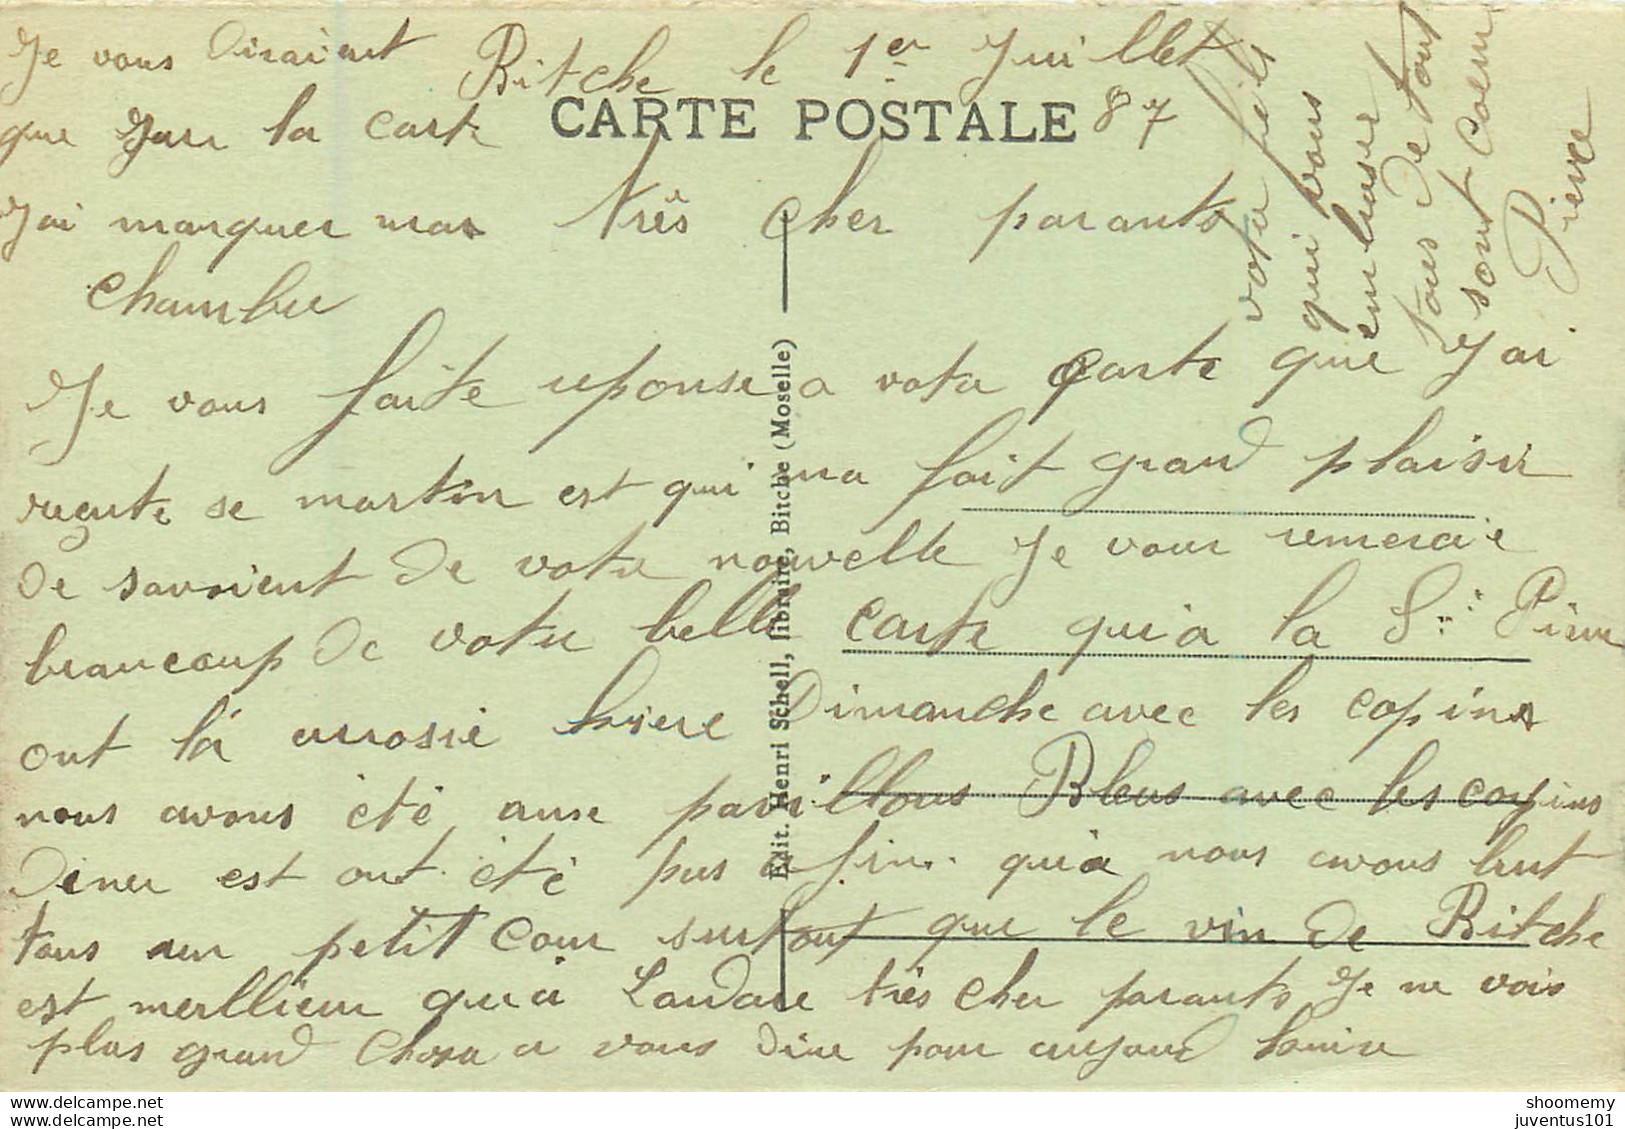 Je vous disaient
que sur la carte
j'ai marquer mas
chambre
Bitche le 1er Juillet
CARTE POSTALE 87
très cher parants
Je vous faite reponse a votre carte que j'ai
reçute se martin est qui ma fait grand plaisir
de savoient de votre nouvelle Je vous remercie
beaucoup de votre belle carte qui a la St Pierre
ont là arrosié hiere Dimanche avec les copins
nous avons été ause pavillons Bleus avec les copins
diner est ont été pas a fin qui a nous avons but
tous un petit cour surtout que le vin de Bitche
est merllieur qui a Landare très cher parants Je ne vois
plus grand chosa a vous dire pour aujourd huire
votre fils
qui vous
embrasse
tous de tout
sont coeur
Pierre
Edit. Henri Schell, libraire, Bitche (Moselle)
shoomemy
juventus101